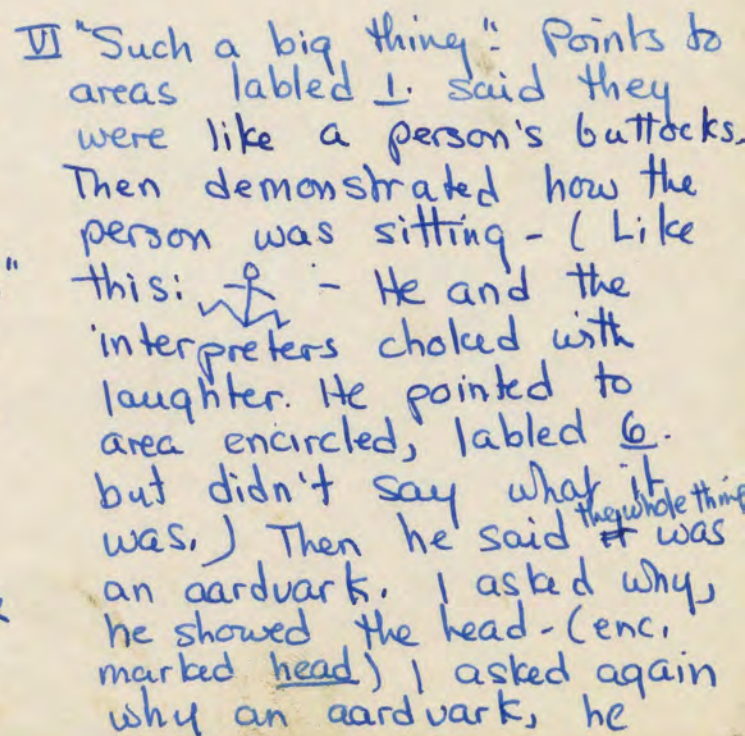 VI "Such a big thing": Points to
areas labled 1. said they
were like a person's buttocks.
Then demonstrated how the
person was sitting - ( Like
this: - He and the
interpreters choked with
laughter. He pointed to
area encircled, labled 6.
but didn't say what it
was.) Then he said the whole thing was
an aardvark. I asked why,
he showed the head - (enc.
marked head) I asked again
why an aardvark, he